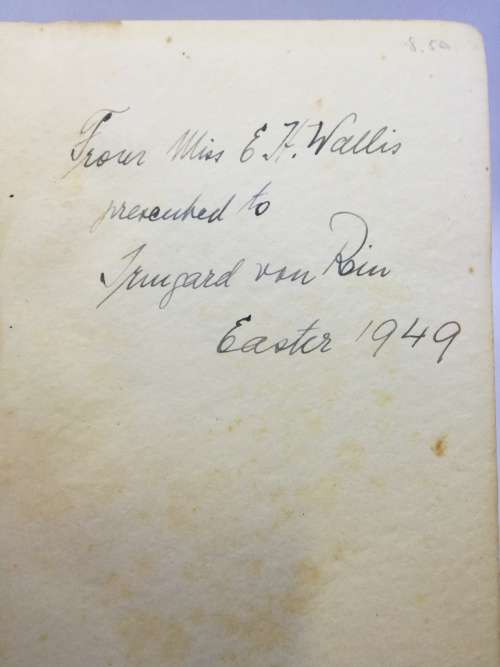 8.50
From Miss E H. Wallis
presented to
Irmgard von Rein
Easter 1949